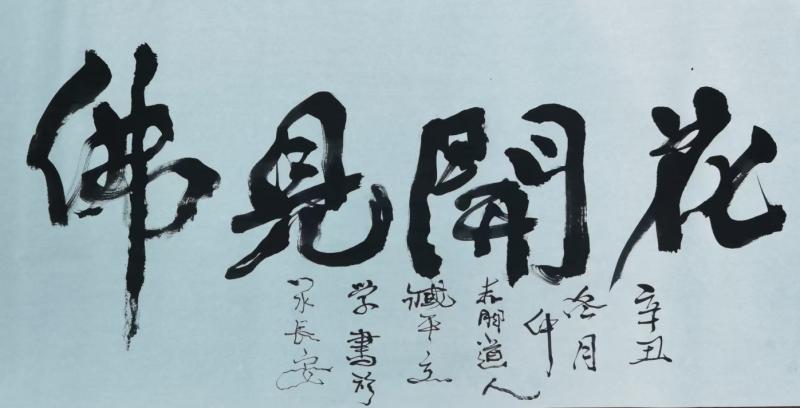 花開見佛
辛丑
冬月
仲
赤腳道人
臧平立
学書於
長安